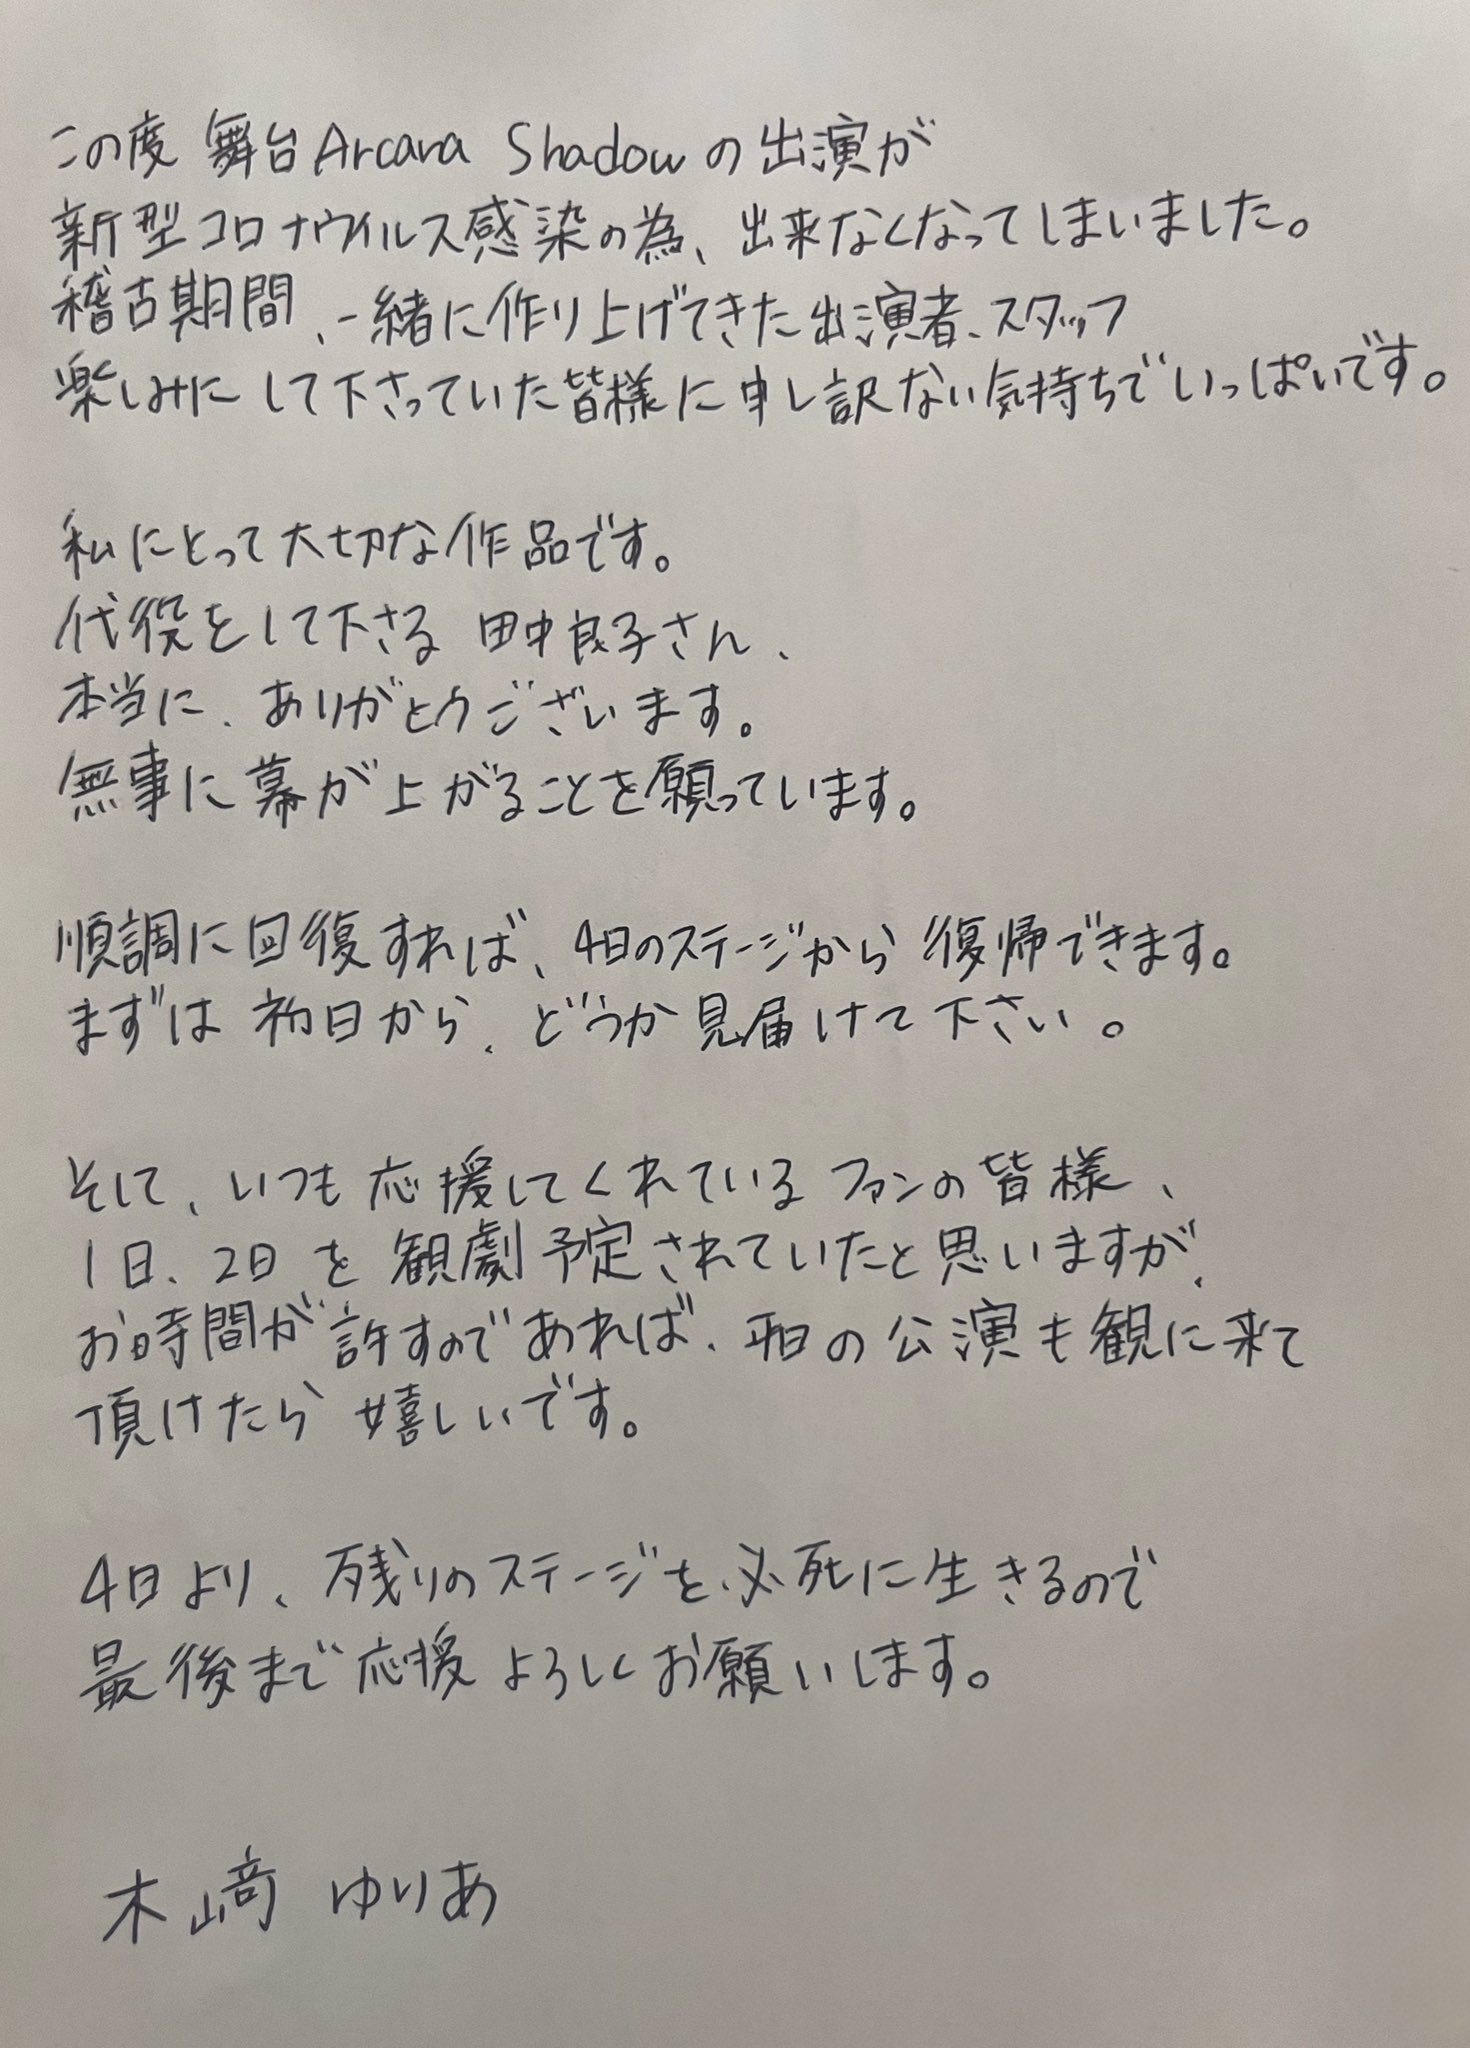 この度 舞台Arcana Shadowの出演が
新型コロナウイルス感染の為、出来なくなってしまいました。
稽古期間、一緒に作り上げてきた出演者、スタッフ
楽しみにして下さっていた皆様に申し訳ない気持ちでいっぱいです。
私にとって大切な作品です。
代役をして下さる 田中良子さん、
本当に、ありがとうございます。
無事に幕が上がることを願っています。
順調に回復すれば、4日のステージから復帰できます。
まずは初日から、どうか見届けて下さい。
そして、いつも応援してくれているファンの皆様、
1日、2日を観劇予定されていたと思いますが、
お時間が許すのであれば、平日の公演も観に来て
頂けたら嬉しいです。
4日より、残りのステージを必死に生きるので
最後まで応援よろしくお願いします。
木﨑 ゆりあ